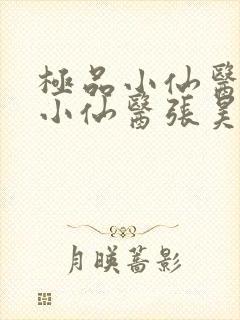 極品小仙醫
小仙醫張昊
月暎薔影